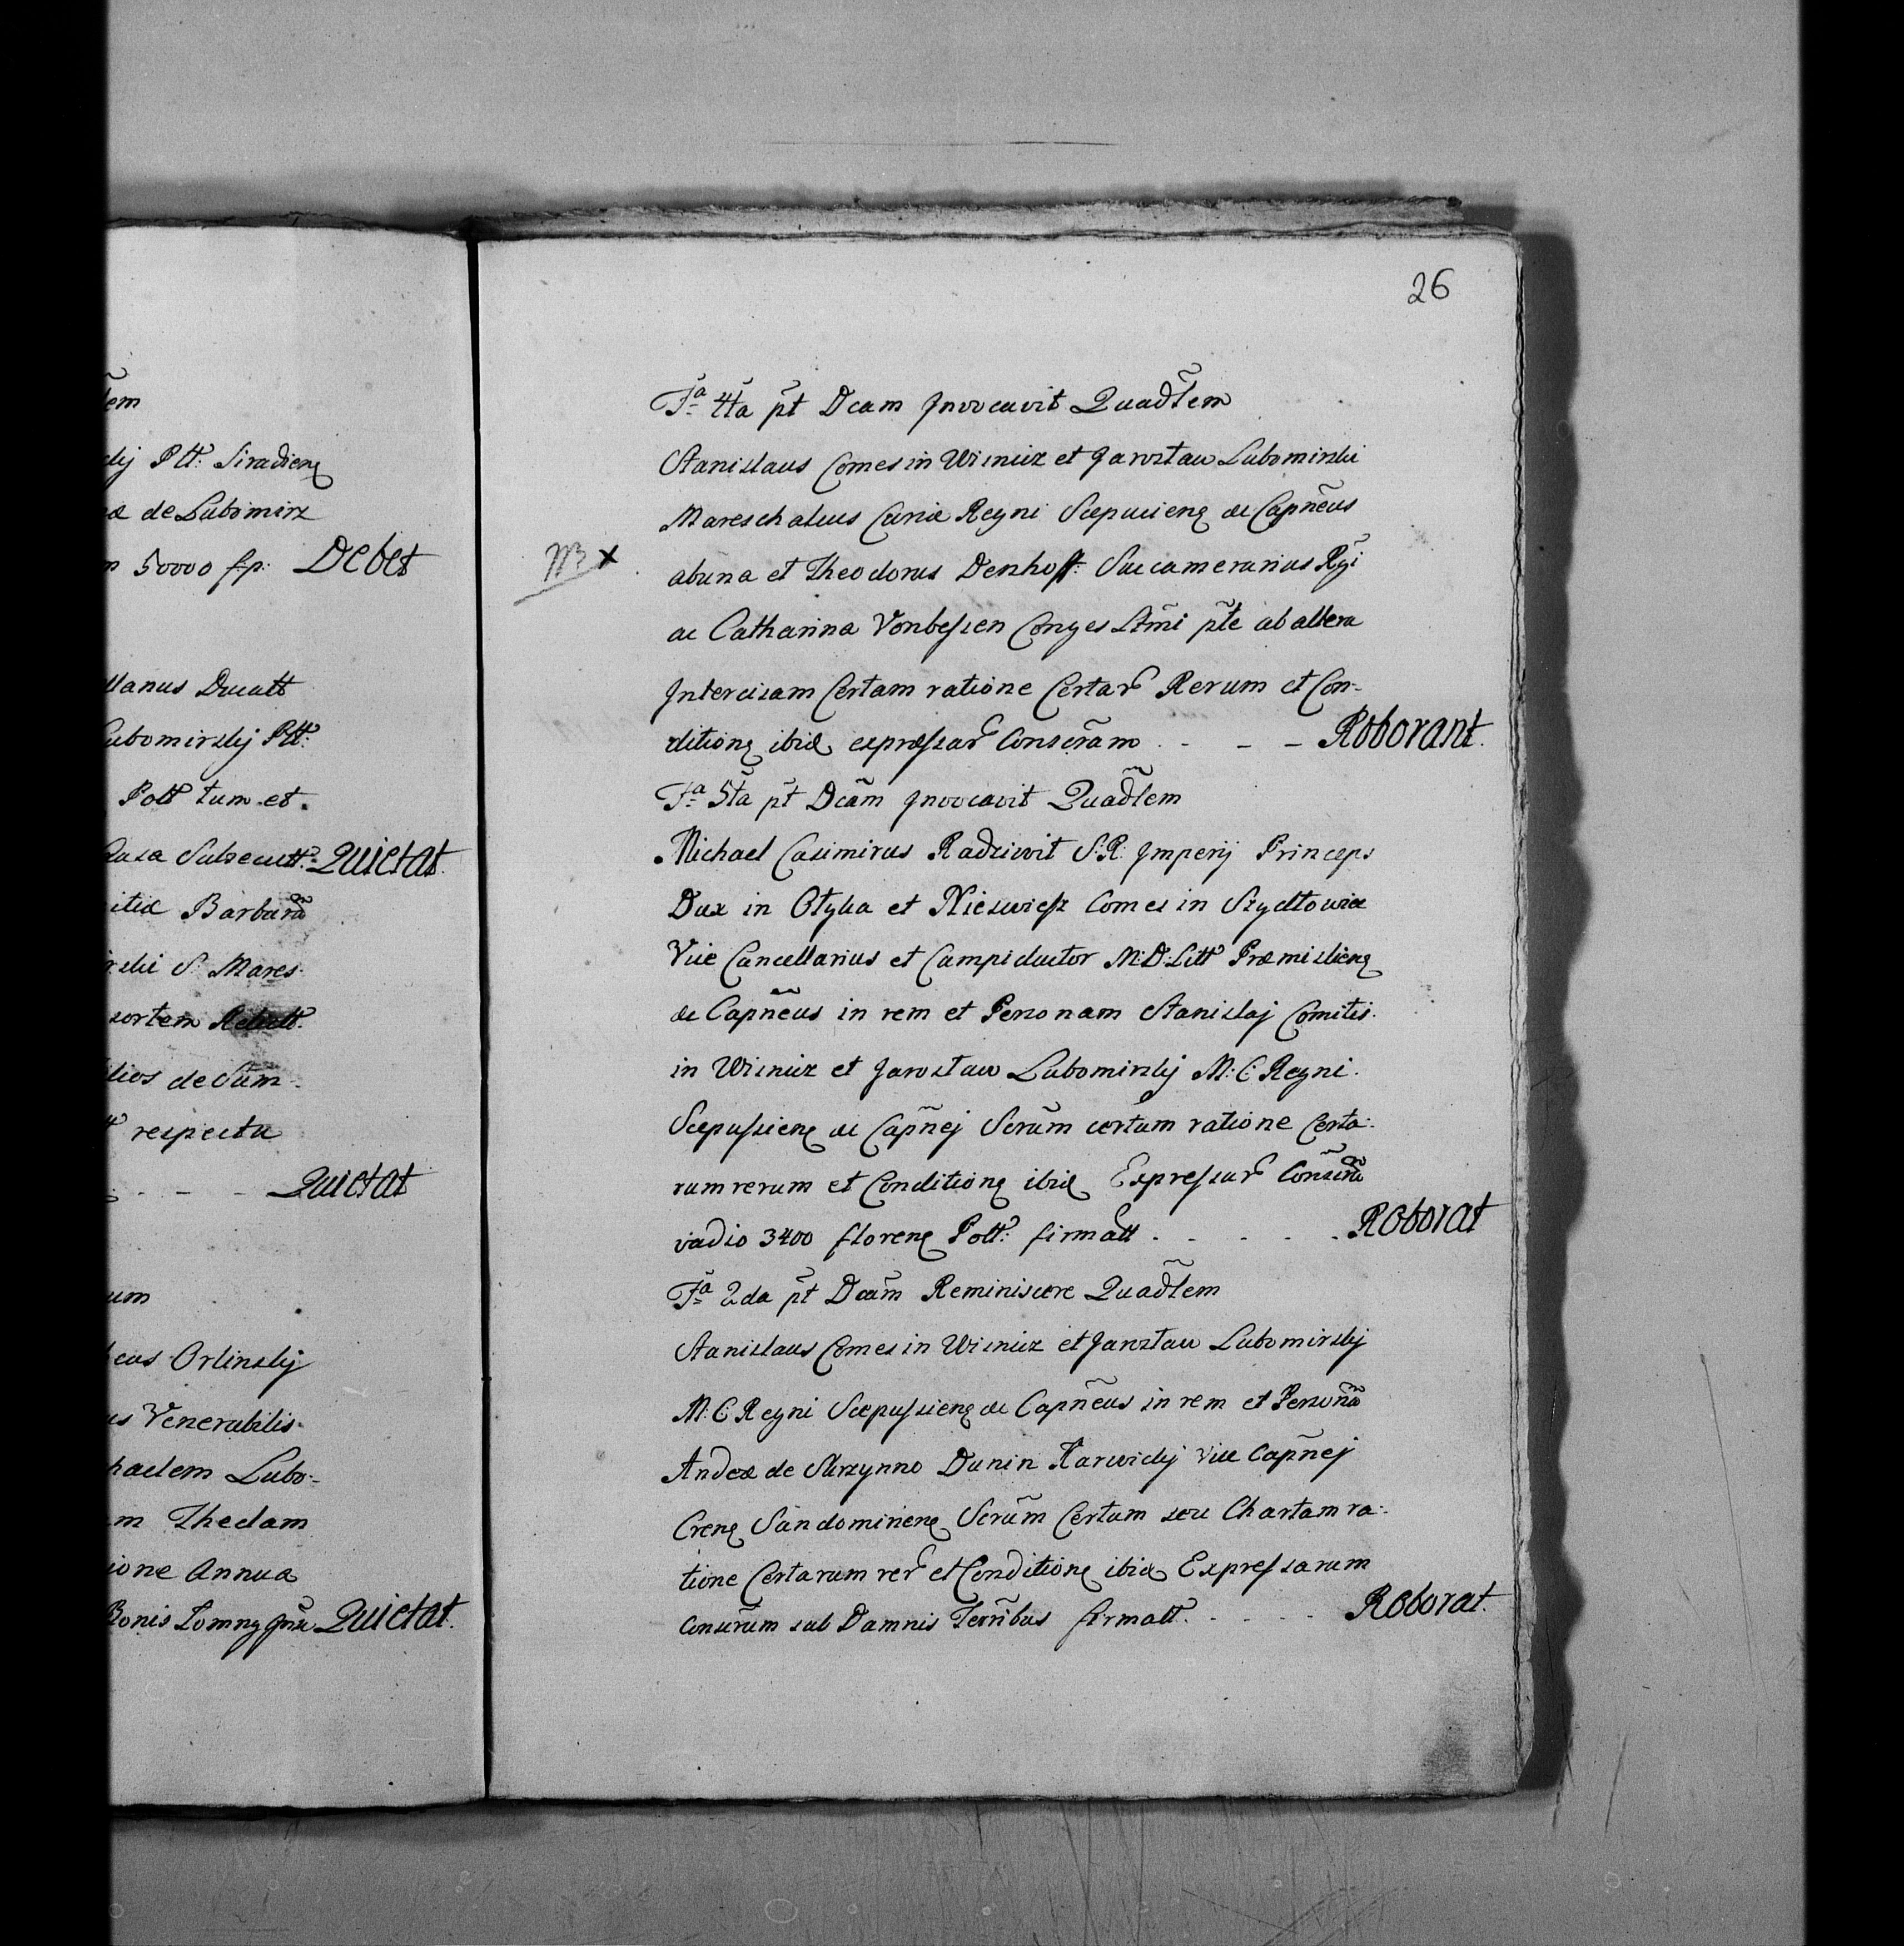 ẽm
skj Ptt: Siradien̄
æ de Lubomirz
m 50000 fp: Debet
llanus Ducatt
Lubomirskj Ptt:
Poll tum et.
Causa Subsecutt: Quietat.
itiæ Barbarã
irski S: Mares.
sortem Relictt.
lios de Sum-
respectu
- - - Quietat
um
eus Orlinskj
us Venerabilis.
haelem Lubo-
m Theclam
ione Annua
Bonis Lomny Quietat.
26
Fᵃ 4ta p̃t Dcam Jnvocavit Quadr̃lem
Stanislaus Comes in Wisnicz et Jarosław Lubomirski
Mareschalcus Curiæ Regni Scepusien̄ ac Capñeus
NB X
ab una et Theodorus Denhoff: Succamerarius Rg̃i
ac Catharina Vonbessen Conges Ltm̃i p̃te ab altera
Jntercisam Certam ratione Certar̃ Rerum et Con-
dition̄ ibid̄ expræssar̃ Conscr̃am . - - - Roborant.
Fᵃ 5ta p̃t Dcãm Jnvocavit Quadr̃lem
Michael Casimirus Radziwił S:R: Jmperij Princeps
Dux in Ołyka et Nieswiesz Comes in Szydłowiec
Vice Cancellarius et Campiductor M:D:Litt Præmislien̄
ac Capñeus in rem et Personam Stanislaj Comitis.
in Wisnicz et Jarosław Lubomirskj M:C: Regni.
Scepussien̄ ac Capñej Scrũm certum ratione Certa-
rum rerum et Condition̄ ibid̄ Expressar̃ Conscrũ
vadio 3400 floren̄ Poll: firmatt . . . . . Roborat
Fᵃ 2da p̃t Dcãm Reminiscere Quadr̃lem
Stanislaus Comes in Wisnicz et Jarosław Lubomirskj
M:C: Regni Scepussien̄ ac Capñeus in rem et Personã
Andreæ de Skrzynno Dunin Karwickj Vice Capñej
Cren̄ Sandomirien̄ Scrũm Certum seu Chartam ra-
tione Certarum rer̃ et Condition̄ ibid̄ Expressarum
Conscrũm sub Damnis Terr̃ibus firmatt. . . . . Roborat.